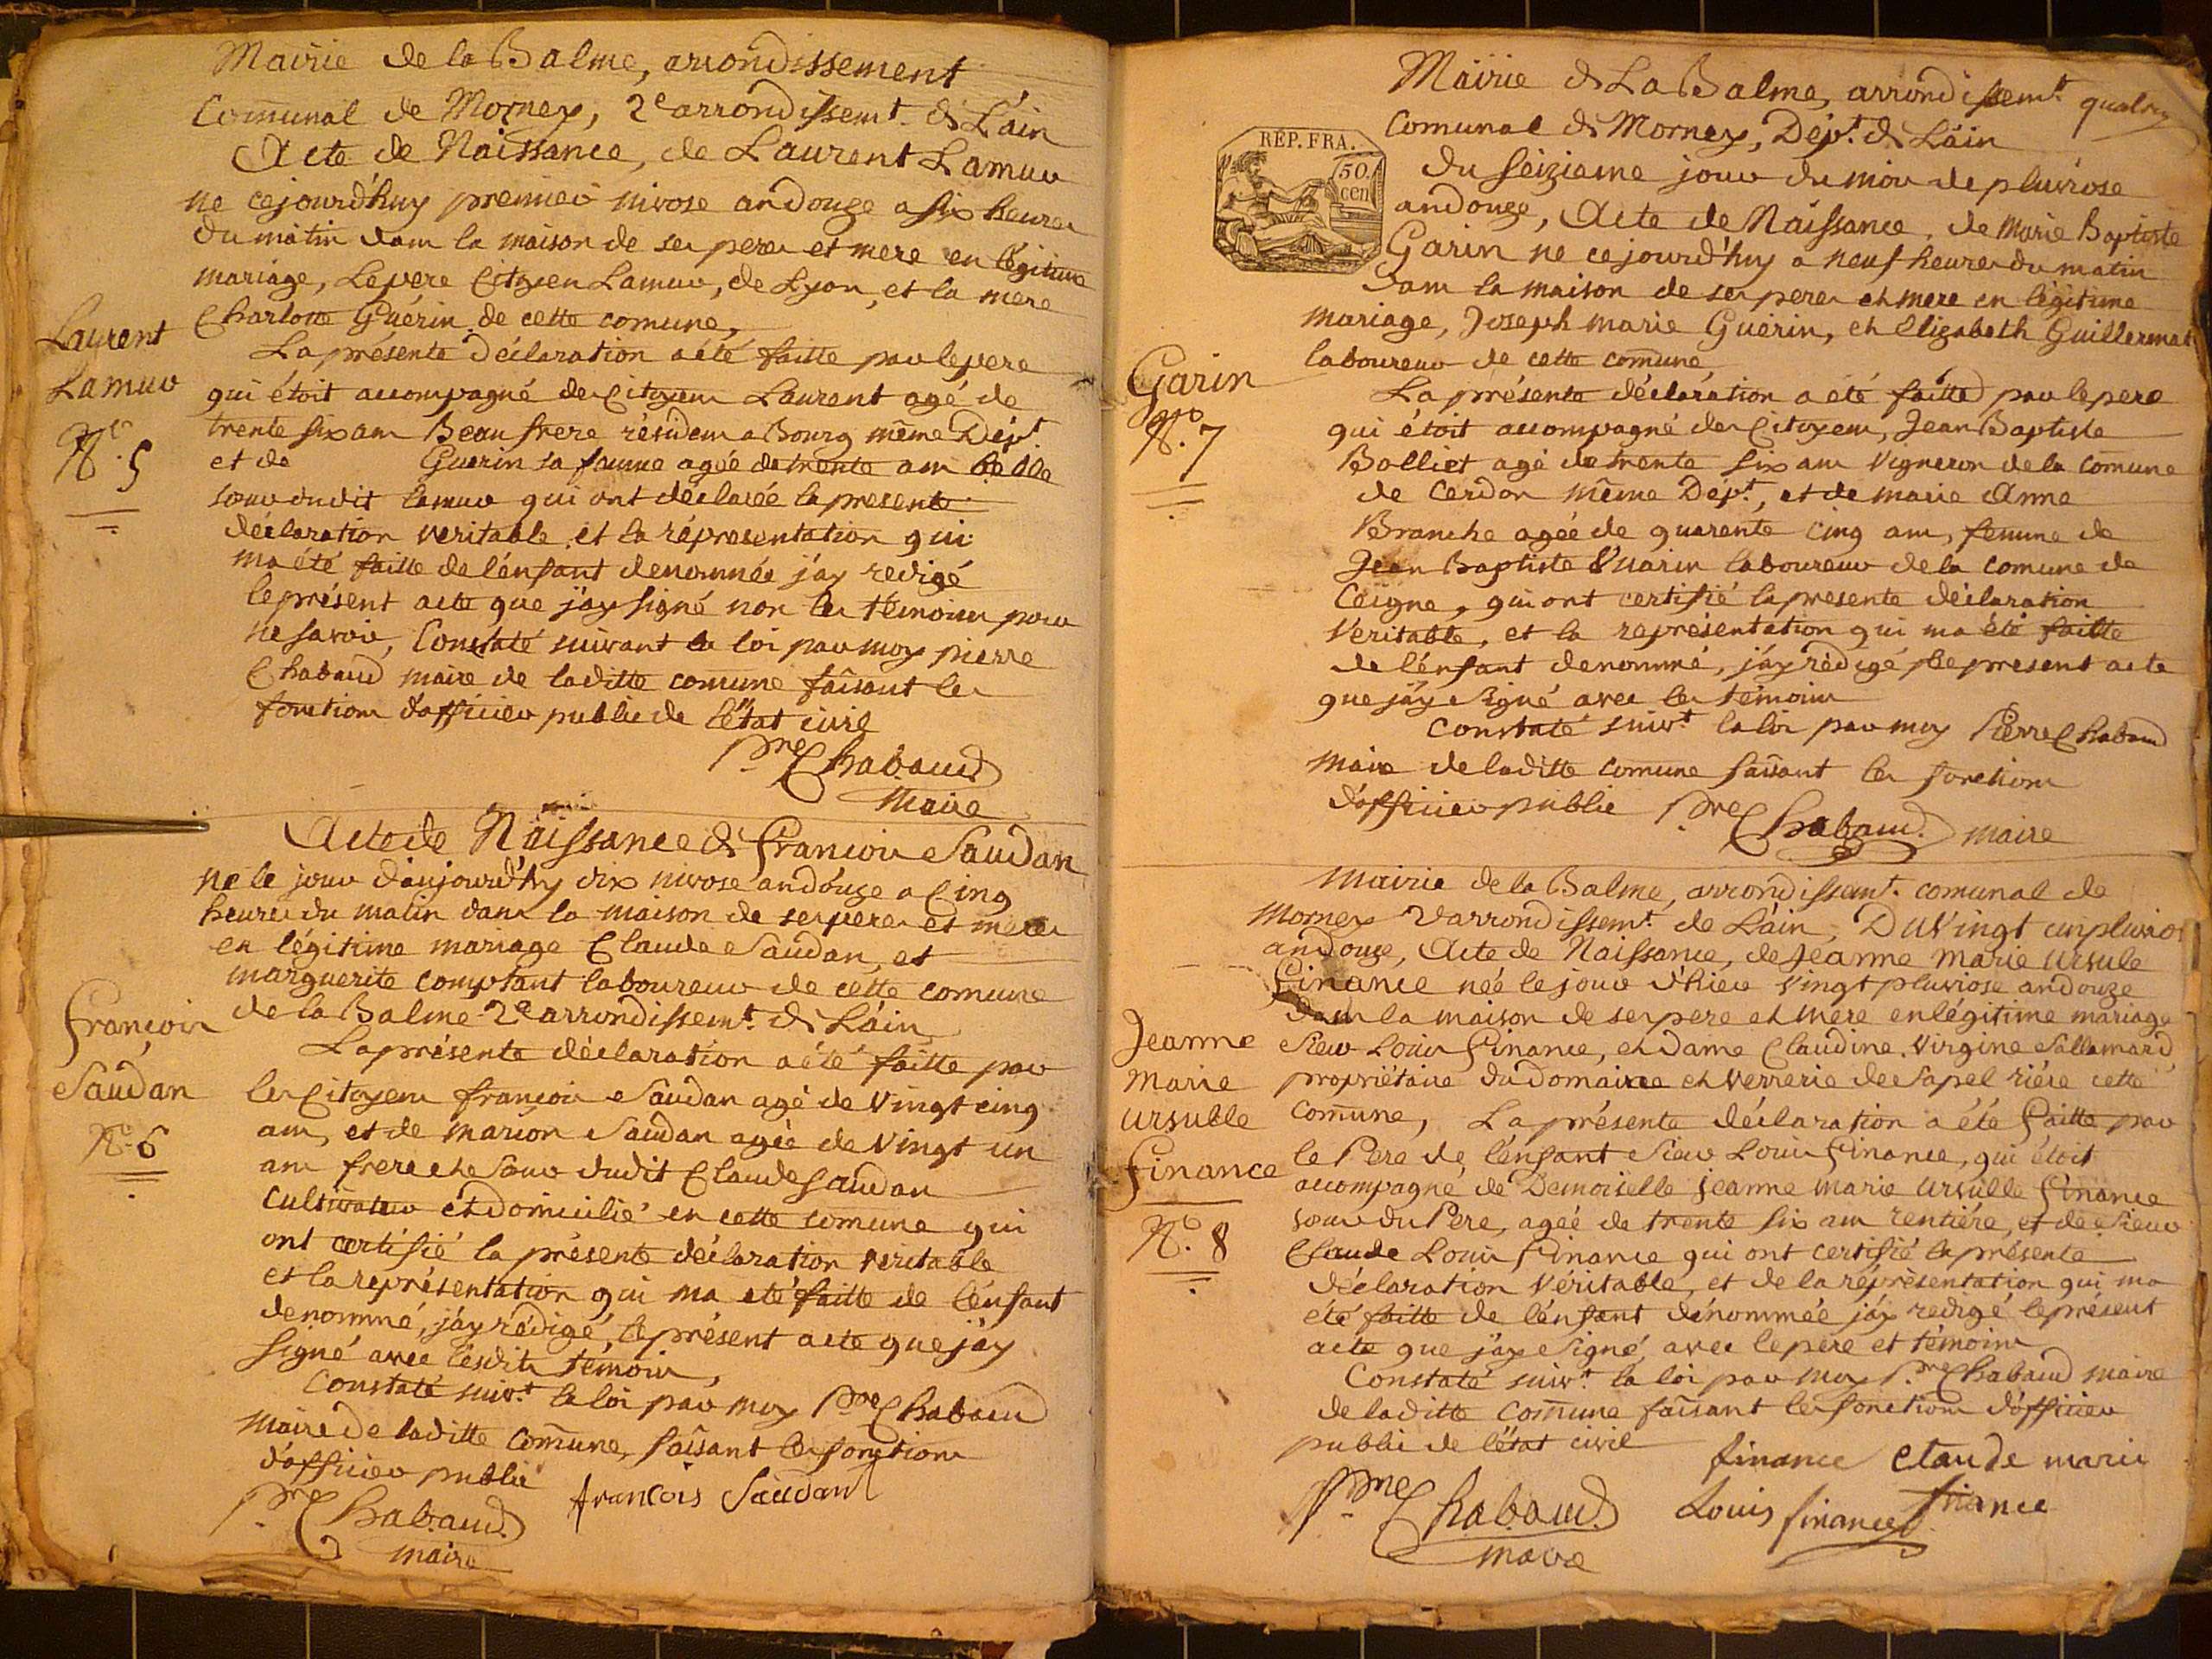 Mairie de la Balme, arrondissement
Comunal de Mornex, 2e arrondissemt. de L'ain
Acte de Naissance, de Laurent Lamur
ne cejourd'huy premier nivose an douze a six heures
du matin dans la maison de ses peres et mere en légitime
mariage, Le pere Citoyen Lamur, de Lyon, et la mere
Charlotte Guérin de cette comune,
La présente déclaration a été faitte par le pere
qui étoit accompagné des Citoyens Laurent agé de
trente six ans Beau frere résidens a Bourg même Dépt.
et de Guerin sa famme agée de trente ans
sœur dudit lamur qui ont déclarée la presente
déclaration veritable et la répresentation qui
ma été faitte de l'énfant denommée j'ay redigé
le présent acte que j'ay signé non les témoins pour
ne savoir, Constaté suivant la loi par moy pierre
Chabaud maire de laditte comune faisant les
fonctions d'officier public de l'état civil
Pre Chabaud
Maire
Laurent
Lamur
No. 5
Acte de Naissance de François Saudan
né le jour d'aujourd'hy dix nivose an douze a Cinq
heures du matin dans la maison de ses peres et meres
en légitime mariage Claude Saudan, et
marguerite comptant laboureur de cette comune
de la Balme 2e arrondissemt. de L'ain
La présente déclaration a été faitte par
les Citoyens françois Saudan agé de Vingt cinq
ans, et de marion Saudan agée de Vingt un
ans frere et Sœur dudit Claude Saudan
Cultivateur et domicilié en cette comune qui
ont certifié la présente déclaration veritable
et la représentation qui ma eté faitte de l'énfant
denommé, j'ay rédigé, le présent acte que j'ay
signé avec lesdits témoins,
Constaté suivt. la loi par moy Pre Chabaud
Maire de laditte Comune, faisant les fonctions
d'officier public
françois Saudan
Pre Chabaud
maire
François
Saudan
No. 6
Mairie de La Balme, arrondissemt.
Comunal de Mornex, Dépt. de L'ain
RÉP. FRA.
50
cen
Du seizieme jour du mois de pluviose
an douze, Acte de Naissance, de Marie Baptiste
Garin ne cejourd'huy a neuf heures du matin
dans la maison de ses peres et mere en légitime
mariage, Joseph marie Guérin, et Elizabeth Guillermat
laboureur de cette comune,
La présente déclaration a été faitte par le pere
qui étoit accompagné des Citoyens, Jean Baptiste
Bolliet agé de trente six ans Vigneron de la Comune
de Cerdon même Dépt., et de marie Anne
Branche agée de quarente cinq ans, femme de
Jean Baptiste Guarin laboureur de la comune de
Ceigne, qui ont certifié la presente déclaration
Veritable, et la représentation qui ma été faitte
de l'énfant denommé, j'ay rédigé, le present acte
que j'ay signé avec les témoins
Constaté suivt. la loi par moy Pierre Chabaud
Maire de laditte comune faisant les fonctions
d'officier public Pre Chabaud. maire
Garin
No. 7
Mairie de la Balme, arrondissemt. comunal de
Mornex 2e arrondissemt. de L'ain, Du Vingt un pluviose
an douze, Acte de Naissance, de Jeanne Marie Ursule
Finance née le jour d'hier Vingt pluviose an douze
dans la maison de ses pere et mere en légitime mariage
Sieur Louis Finance, et dame Claudine Virgine Sallamard
propriétaire du domaine et verrerie de Sapel riére cette
Comune, La présente déclaration a été faitte par
le Pere de l'énfant Sieur Louis Finance, qui étoit
accompagné de Demoiselle Jeanne Marie Ursulle Finance
sœur du Pere, agée de trente six ans rentiére, et de Sieur
Claude Louis Finance qui ont certifié la présente
déclaration Véritable, et de la répresentation qui ma
été faitte de l'énfant dénommée j'ay redigé le présent
acte que j'ay Signé, avec le pere et témoins
Constaté suivt. la loi par moy Pre Chabaud maire
de laditte Comune faisant les fonctions d'officier
public de l'état civil
finance Claude marie
Pre Chabaud Louis finance finance
Maire
Jeanne
Marie
Ursulle
Finance
No. 8